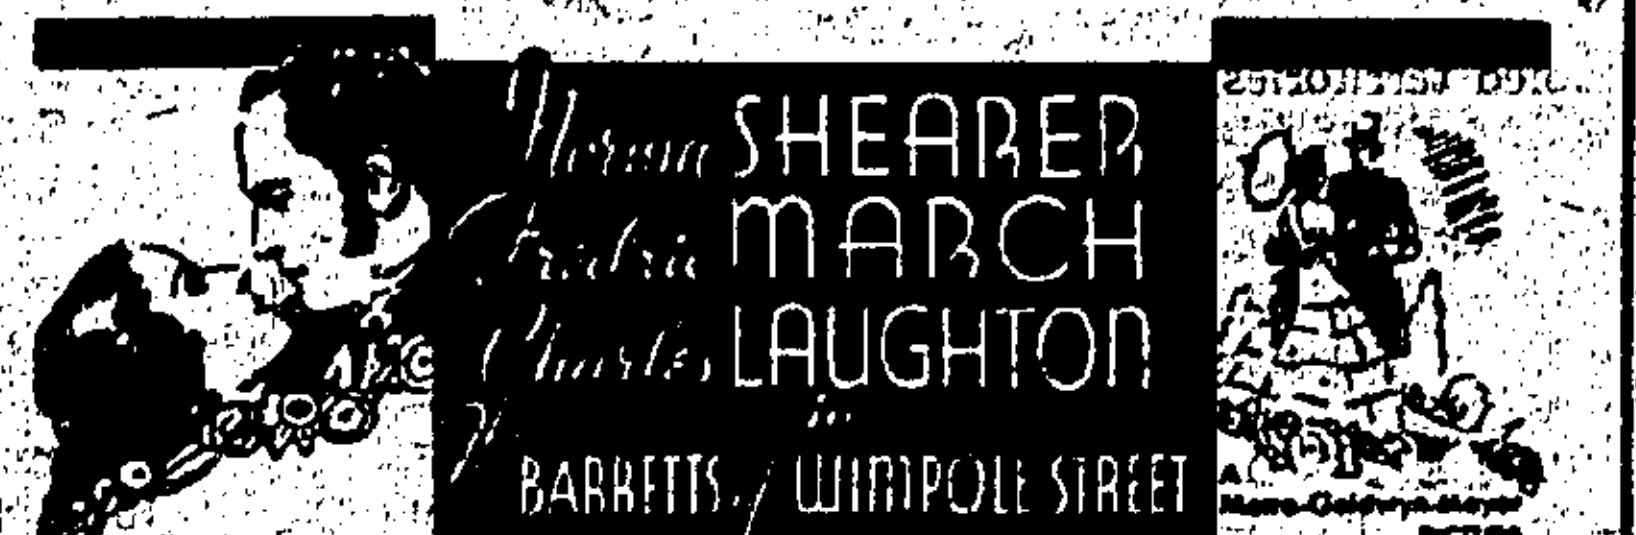 Norma SHEARER
Fredric MARCH
Charles LAUGHTON
in
BARRETTS of WIMPOLE STREET
A
Metro-Goldwyn-Mayer